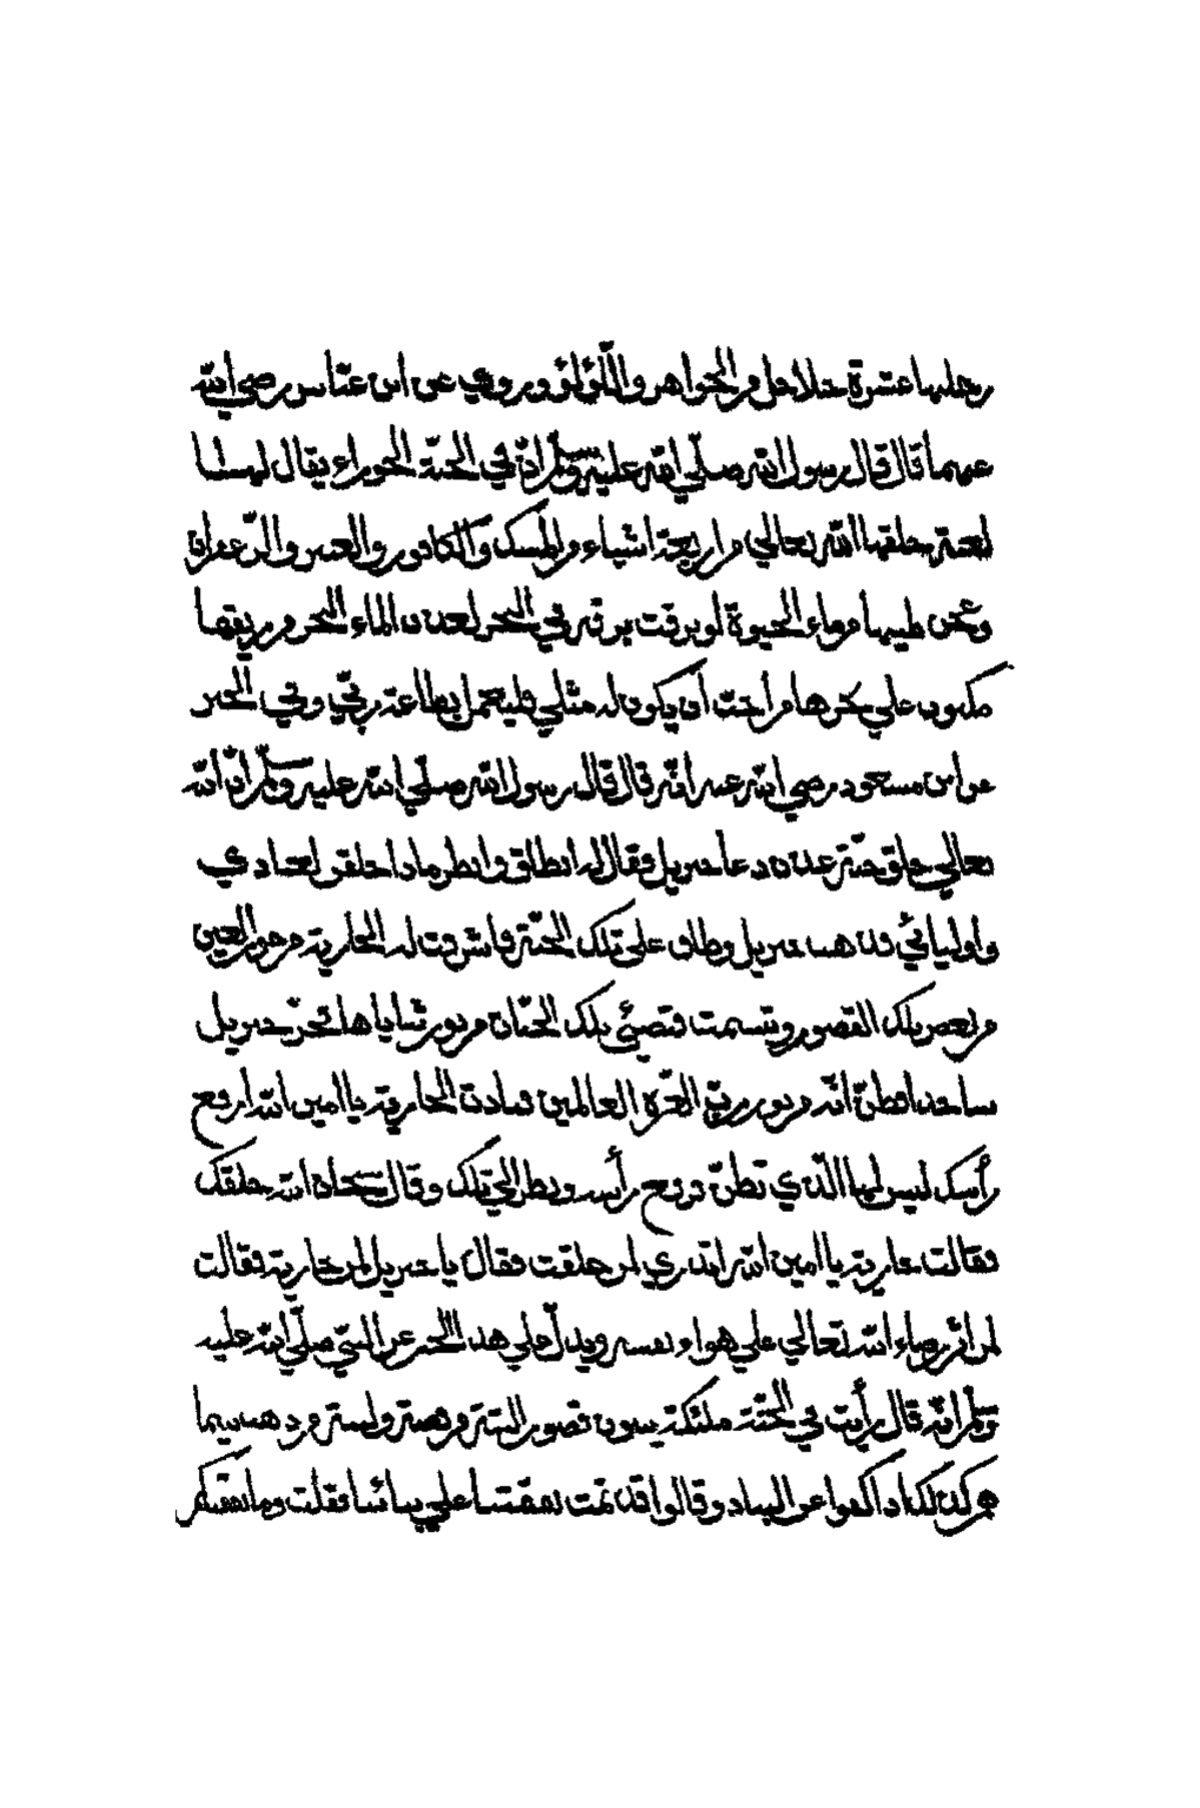 رجليها عشرة خلاخل من الجواهر واللؤلؤ وروي عن ابن عبّاس رضي الله
عنهما قال قال رسول الله صلّي الله عليه وسلّم إنّ في الجنّة الحوراء يقال لها
لعبة خلقها الله تعالي من اربعة اشياء من المسك والكافور والعنبر والزعفران
وعجن طينها من ماء الحيوة لو برقت برقة في البحر لعذب الماء البحر من ريقها
مكتوب علي نحرها من أحبّ أن يكون له مثلي فليعمل بطاعة ربّي وفي الخبر
عن ابن مسعود رضي الله عنه انّه قال قال رسول الله صلّي الله عليه وسلّم انّ الله
تعالي خلق جنّة عدن دعا جبريل فقال له انطلق وانظر ماذا خلقت لعبادي
واوليائي فذهب جبريل وطاف علي تلك الجنّة فاشرفت له الجارية من حور العين
من بعض تلك القصور وتبسمت فتضيئ بتلك الجنان من نور ثناياها فخرّ جبريل
ساجدا فظنّ انّه من نور ربّ العزّة العالمين فنادت الجارية يا امين الله أرفع
رأسك ليس لها الذي تظنّ فرفع رأسه ونظر الي تلك وقال سبحان الله خلقك
فقالت جارية يا امين الله اتدري لمن خلقت فقال يا جبريل لمن جارية فقالت
لمن اثر رضاء الله تعالي علي هواء نفسه ويدلّ علي هذا الخبر عن النبيّ صلّي الله عليه
وسلّم انّه قال رأيت في الجنّة ملئكة يبنون قصور البنة من فضة ولبنة من ذهب بينما
هم كذلك اذ اكفوا عن البناء وقالوا قد تمت نفقتنا علي بنائنا فقلت وما نفقتكم